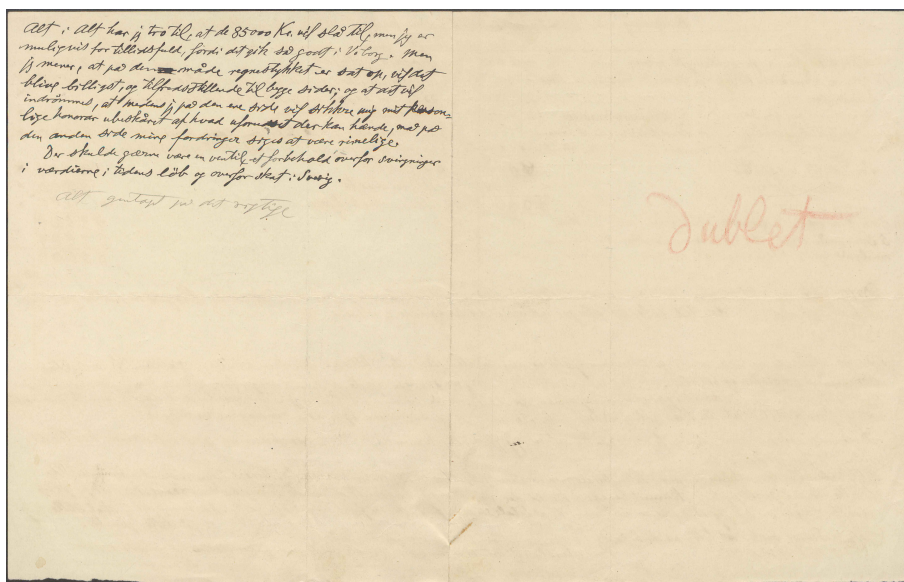 Alt i Alt har jeg tro til, at de 85000 Kr. vil slå til, men jeg er
muligvis for tillidsfuld, fordi det gik så godt i Viborg. Men
jeg mener, at på den måde regnestykket er sat op, vil det
blive billigst, og tilfredsstillende til begge sider; og at det vil
indrömmes, at medens jeg på den ene side vil sikkre mig mit person-
lige honorar ubeskåret af hvad uforudset der kan hænde, må på
den anden side mine fordringer siges at være rimelige.
Der skulde gærne være en ventil, et forbehold overfor svigninger
i værdierne i tidens löb og overfor skat i Sverig.
Alt gentaget på det
Dublet